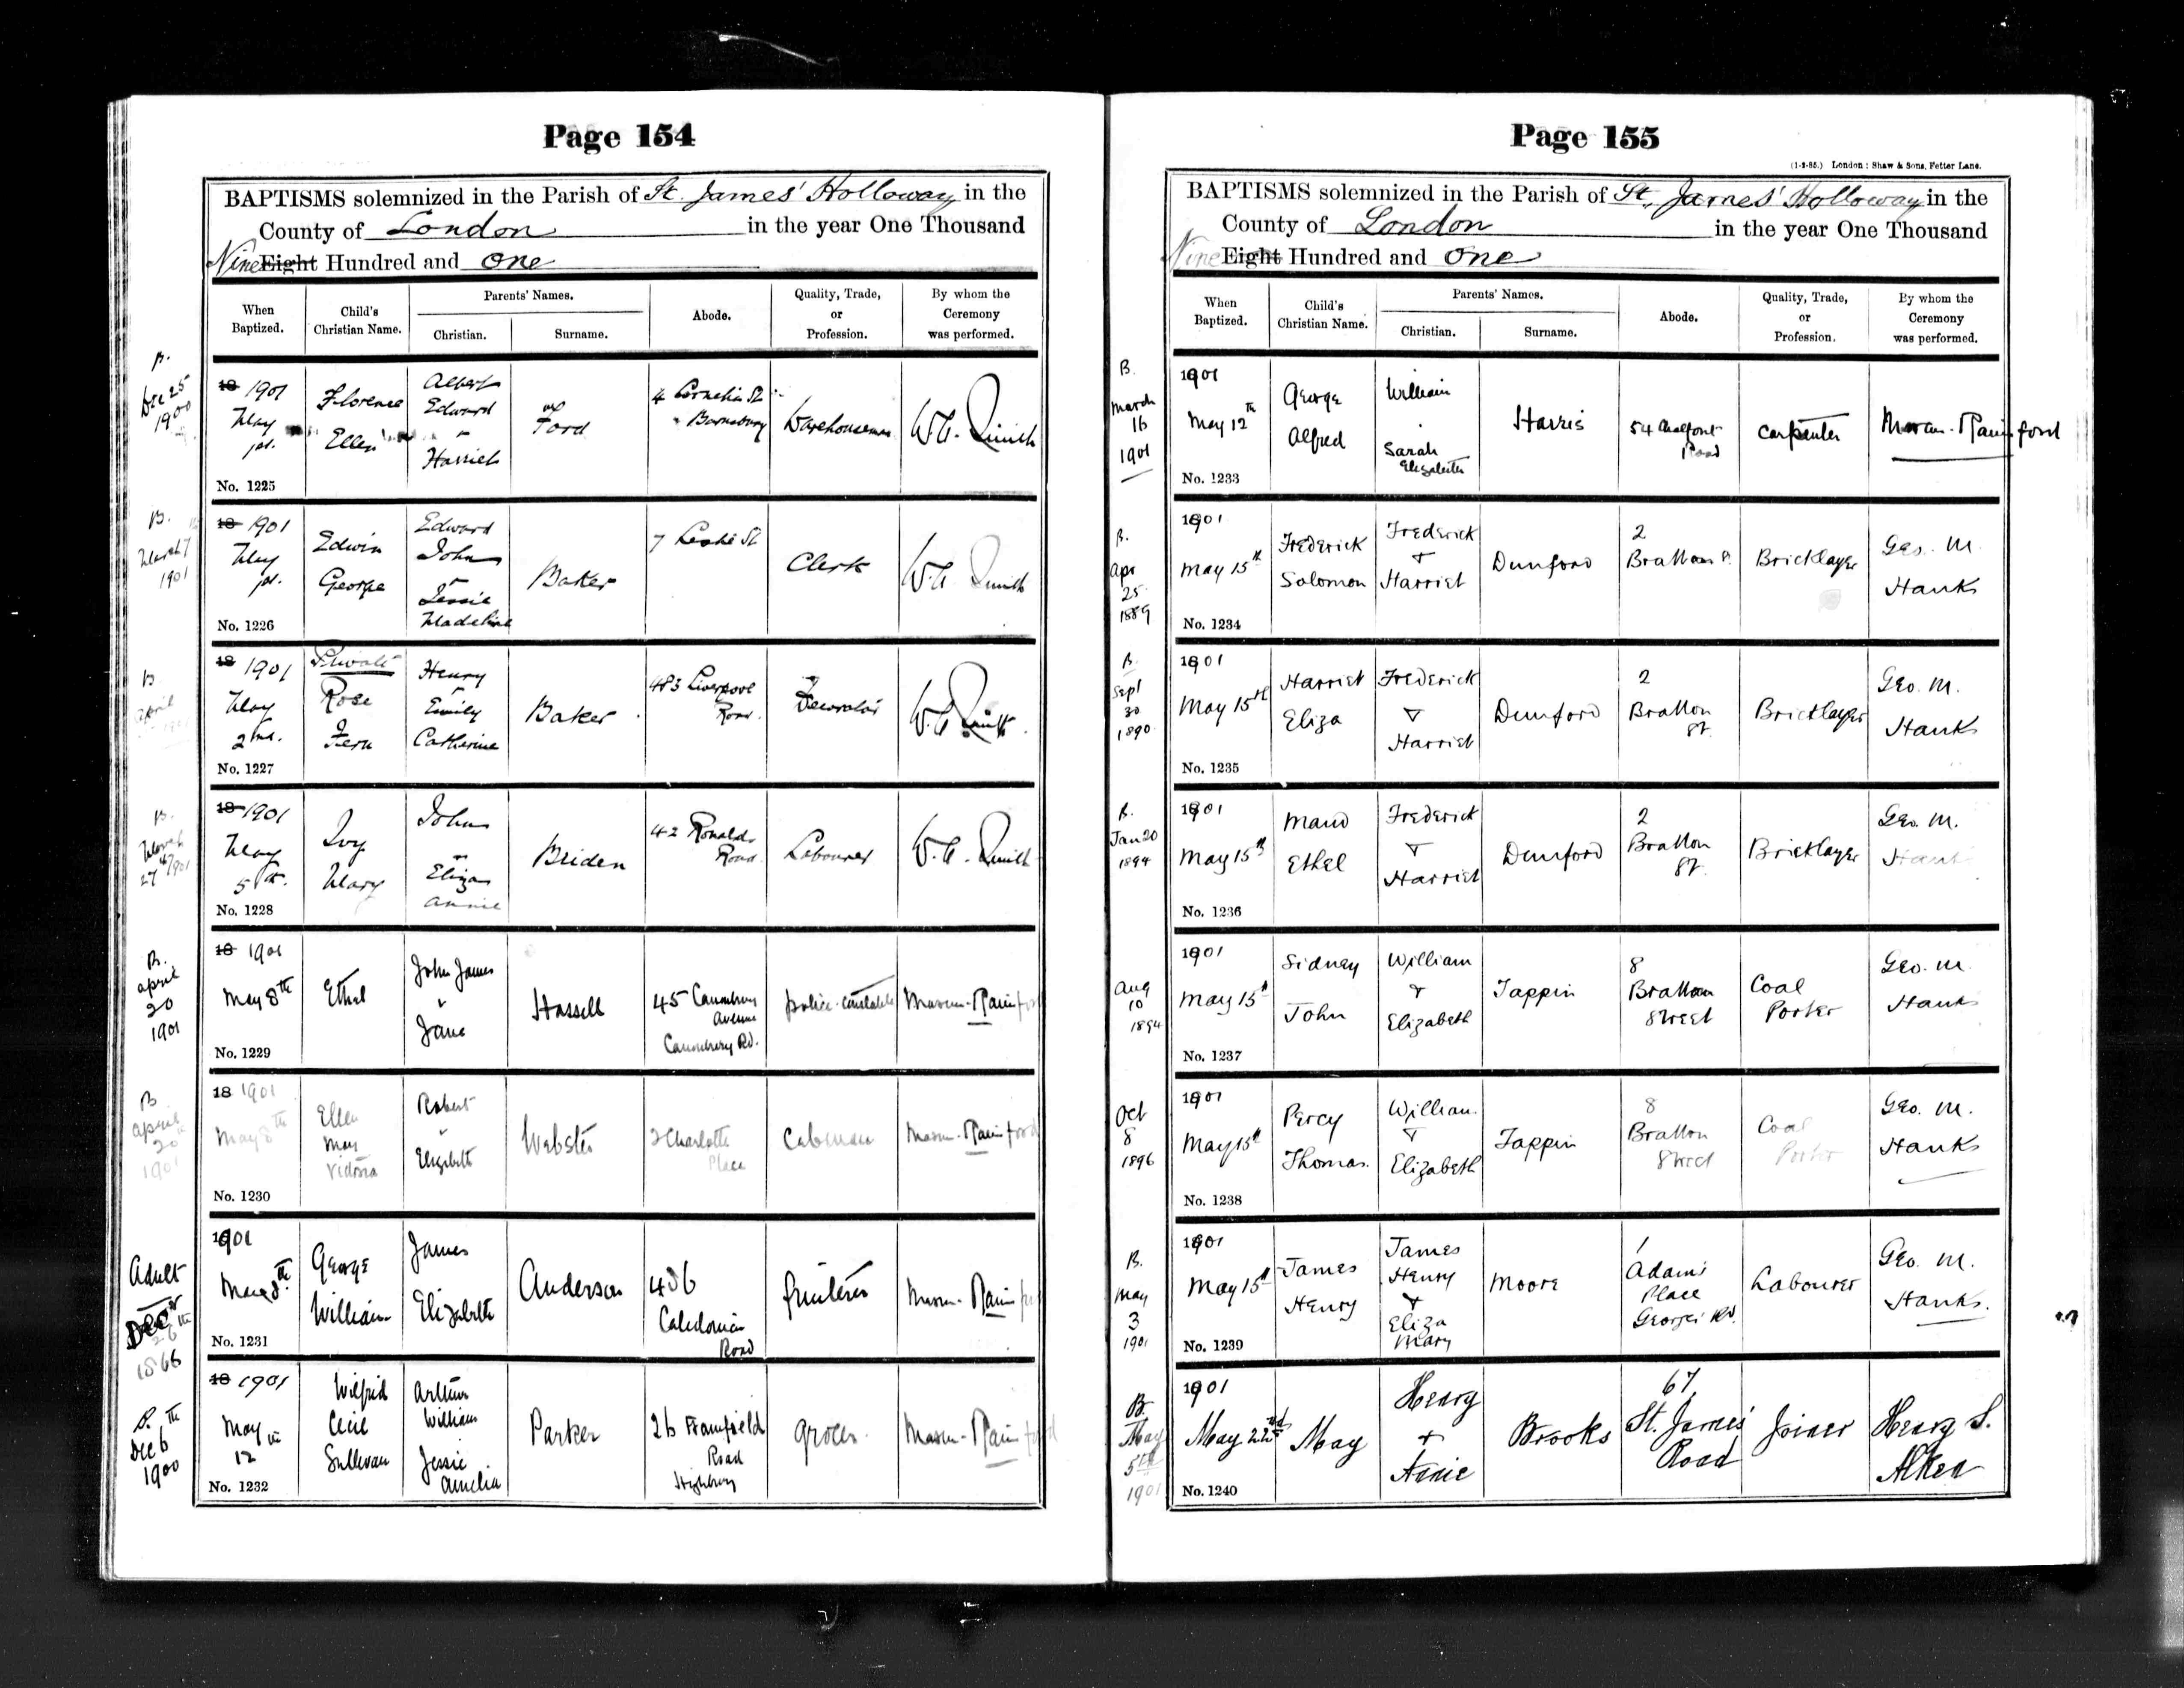 Page 154
BAPTISMS solemnized in the Parish of St. James' Holloway in the
County of London in the year One Thousand
Nine Eight Hundred and One
When Baptized.
Child's Christian Name.
Parents' Names.
Christian.
Surname.
Abode.
Quality, Trade, or Profession.
By whom the Ceremony was performed.
B.
Dec 25
1900
18 1901
May
1st.
No. 1225
Florence
Ellen
Albert
Edward
Harriet
Ford
4 Cornelia St
Barnsbury
Warehouseman
B.
March 7
1901
18 1901
May
1st.
No. 1226
Edwin
George
Edward
John
Jessie
Madeline
Baker
7 Leslie St
Clerk
B
April
18 1901
May
2nd.
No. 1227
Private
Rose
Fern
Henry
Emily
Catherine
Baker
483 Liverpool
Road.
Decorator
B.
March
27 1901
18 1901
May
5th.
No. 1228
Ivy
Mary
John
Eliza
Annie
Briden
42 Ronalds
Road.
Labourer
B.
April
20
1901
18 1901
May 8th
No. 1229
Ethel
John James
Jane
Hassell
45 Canonbury
Avenue
Canonbury Rd.
police-constable
B
April
20
1901
18 1901
May 8th
No. 1230
Ellen
May
Victoria
Robert
Elizabeth
Webster
2 Charlotte
Place
Cabman
Adult
Dec
26th
1866
1901
May 8th.
No. 1231
George
William
James
Elizabeth
Anderson
406
Caledonian
Road
B.
Dec 6th
1900
18 1901
May
12th
No. 1232
Wilfrid
Cecil
Sullivan
Arthur
William
Jessie
Amelia
Parker
26 Framfield
Road
Highbury
Grocer
Page 155
(1-2-95.) London: Shaw & Sons, Fetter Lane.
BAPTISMS solemnized in the Parish of St. James' Holloway in the
County of London in the year One Thousand
Nine Eight Hundred and One
When Baptized.
Child's Christian Name.
Parents' Names.
Christian.
Surname.
Abode.
Quality, Trade, or Profession.
By whom the Ceremony was performed.
B.
March
16
1901
1901
May 12th
No. 1233
George
Alfred
William
Sarah
Elizabeth
Harris
54 Chalfont
Road
Carpenter
B.
Apr
25
1889
1901
May 15th
No. 1234
Frederick
Solomon
Frederick
+
Harriet
Dunford
2
Bratton St.
Bricklayer
Geo. M.
Hanks
B.
Sept
30
1890
1901
May 15th
No. 1235
Harriet
Eliza
Frederick
+
Harriet
Dunford
2
Bratton
St.
Bricklayer
Geo. M.
Hanks
B.
Jan 20
1894
1901
May 15th
No. 1236
Maud
Ethel
Frederick
+
Harriet
Dunford
2
Bratton
St.
Bricklayer
Geo. M.
Hanks
Aug
10
1894
1901
May 15th
No. 1237
Sidney
John
William
+
Elizabeth
Tappin
8
Bratton
Street
Coal
Porter
Geo. M.
Hanks
Oct
8
1896
1901
May 15th
No. 1238
Percy
Thomas.
William
+
Elizabeth
Tappin
8
Bratton
Street
Coal
Porter
Geo. M.
Hanks
B.
May
3
1901
1901
May 15th
No. 1239
James
Henry
James
Henry
+
Eliza
Mary
Moore
1
Adams
Place
George's Rd.
Labourer
Geo. M.
Hanks.
B.
May
5th
1901
1901
May 22nd
No. 1240
May
Henry
+
Annie
Brooks
67
St. James'
Road
Joiner
Henry S.